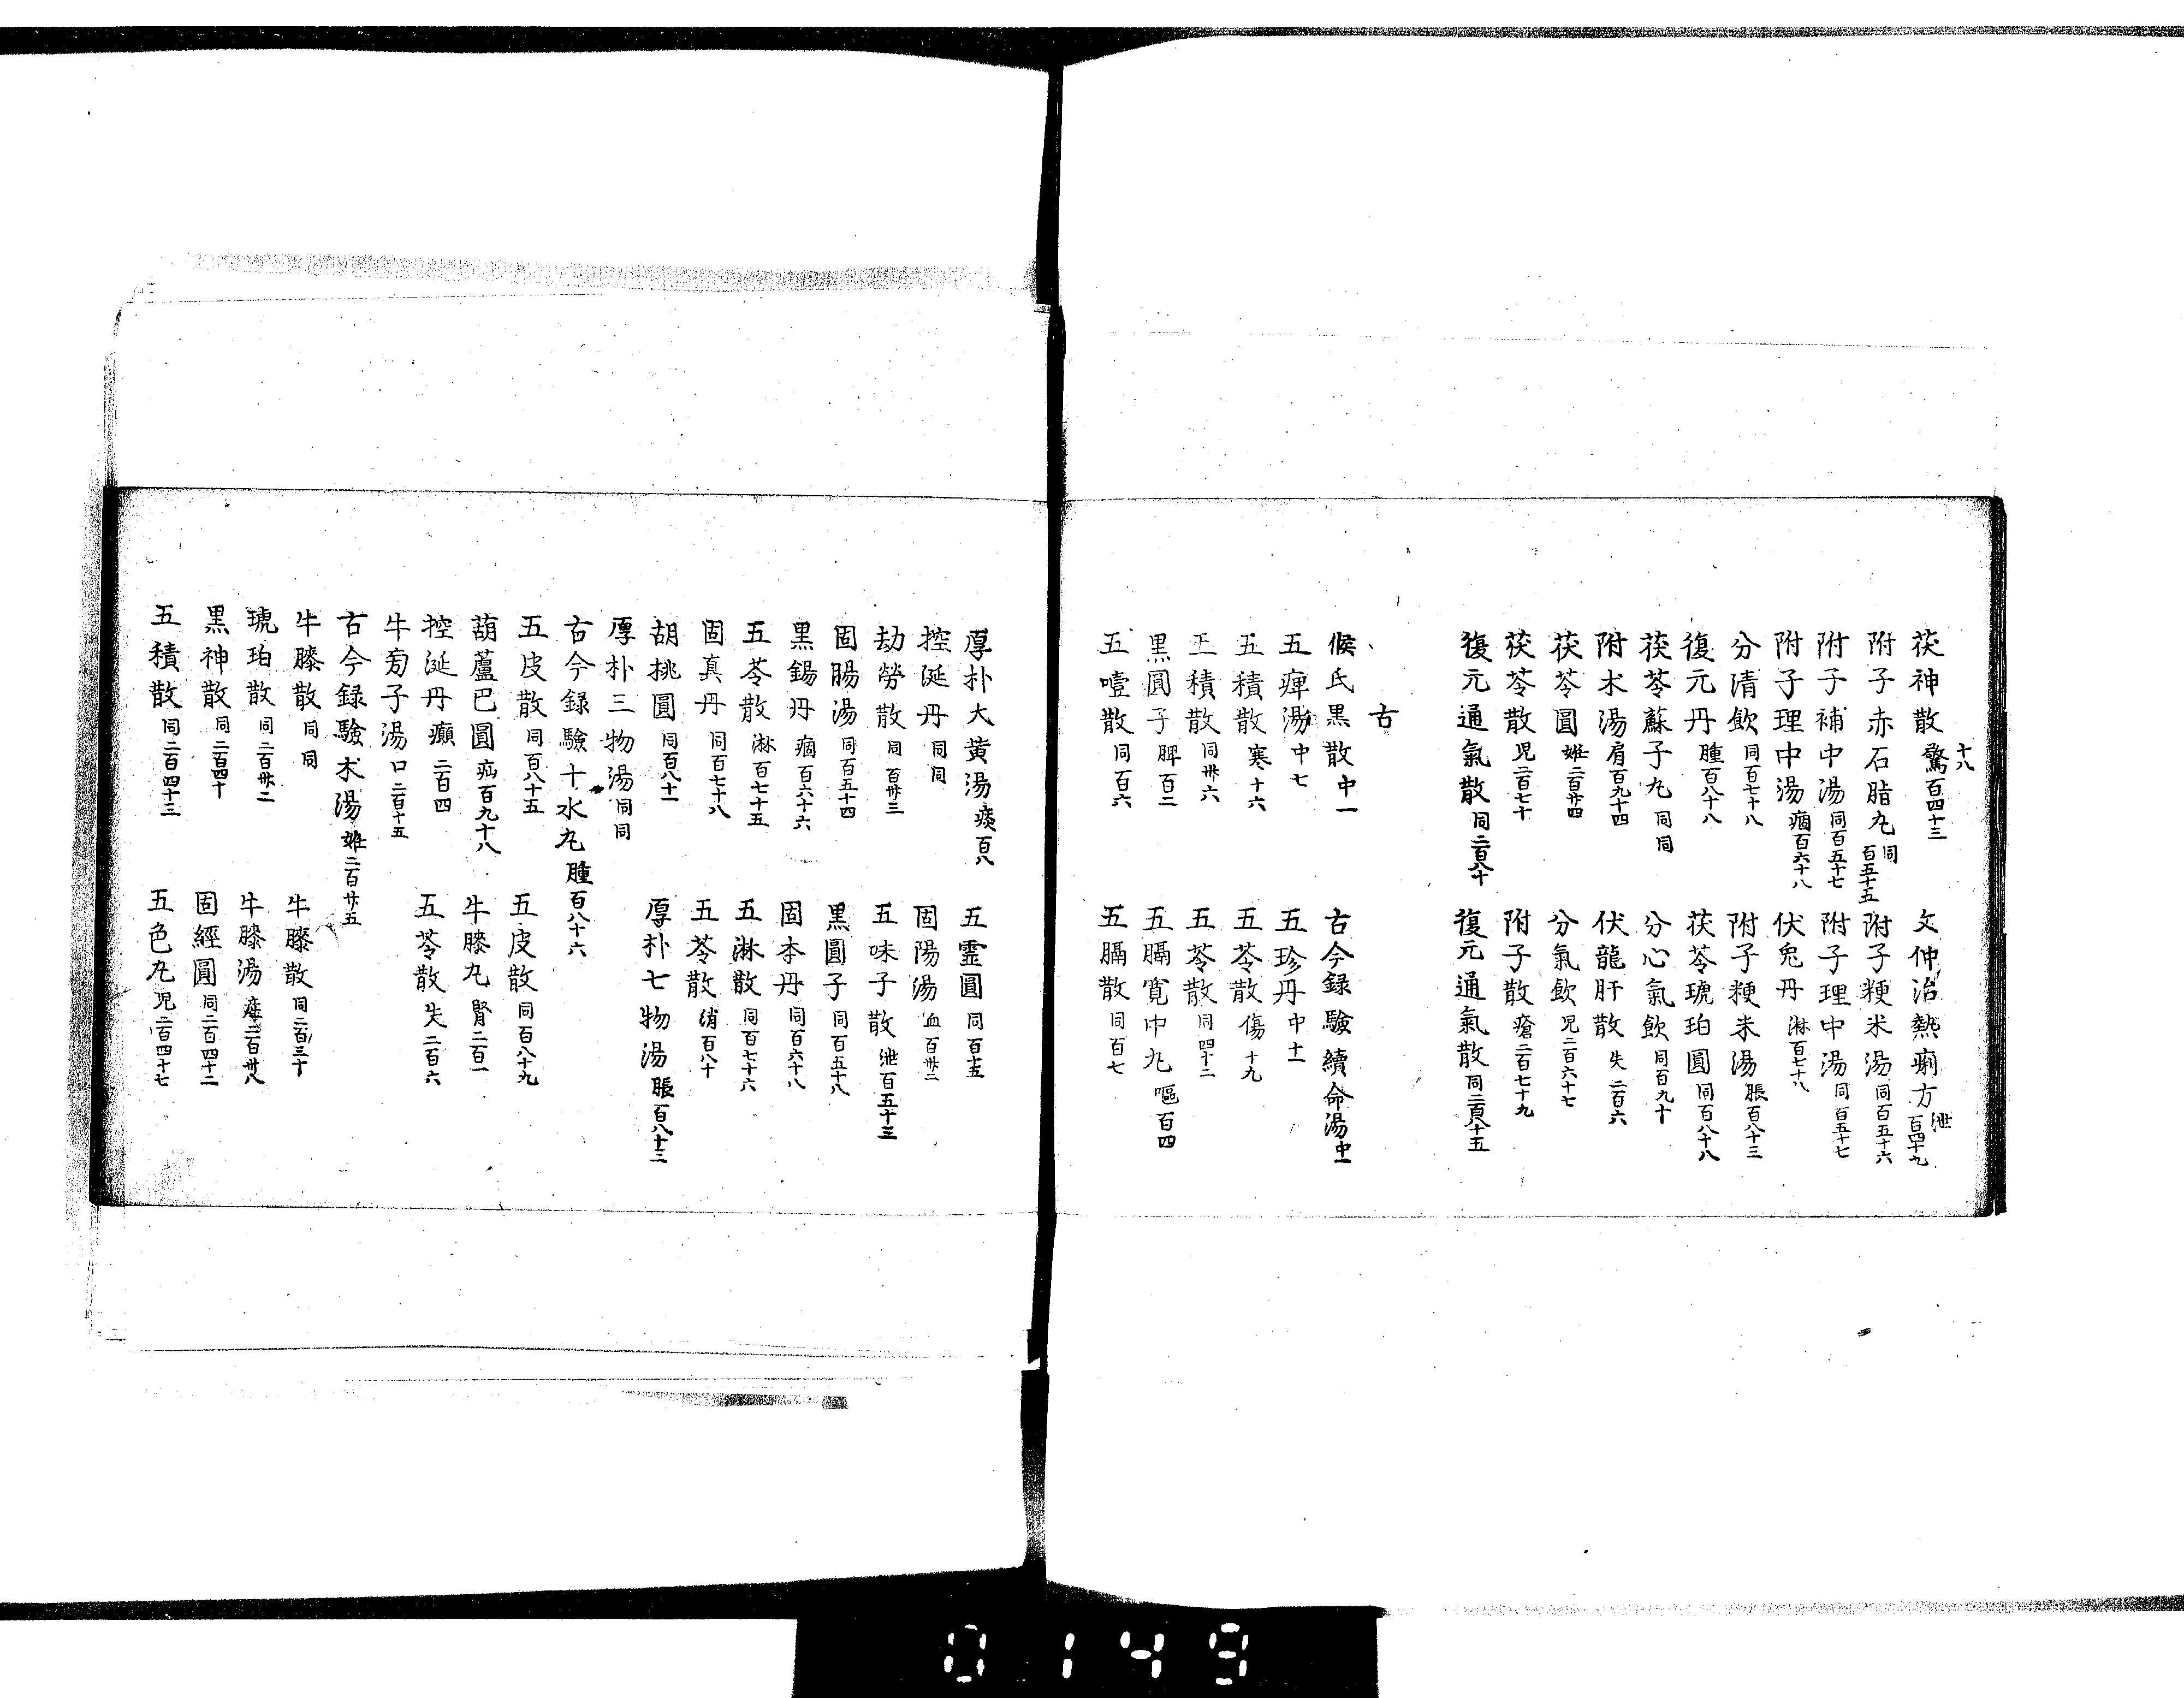 茯神散 驚百四十三 十八
文仲治熱痢方 泄百四十九
附子赤石脂丸 同百五十五
附子粳米湯 同百五十六
附子補中湯 同百五十七
附子理中湯 同百五十七
附子理中湯 痼百六十八
伏兔丹 淋百七十八
分清飲 同百七十八
附子粳米湯 脹百八十三
復元丹 腫百八十八
茯苓琥珀圓 同百八十八
茯苓蘇子丸 同同
分心氣飲 同百九十
附朮湯 肩百九十四
伏龍肝散 失二百六
茯苓圓 姙二百廿四
分氣飲 児二百六十七
茯苓散 児二百七十
附子散 瘡二百七十九
復元通氣散 同二百八十
復元通氣散 同二百八十五
古
候氏黒散 中一
古今録驗續命湯 中一
五痺湯 中七
五珍丹 中十一
五積散 寒十六
五苓散 傷十九
五積散 同卅六
五苓散 同四十二
黒圓子 脾百二
五膈寛中丸 嘔百四
五噎散 同百六
五膈散 同百七
厚朴大黄湯 痰百八
五霊圓 同百十五
控涎丹 同同
固陽湯 血百卅二
劫勞散 同百卅三
五味子散 泄百五十三
固腸湯 同百五十四
黒圓子 同百五十八
黒錫丹 痼百六十六
固本丹 同百六十八
五苓散 淋百七十五
五淋散 同百七十六
固真丹 同百七十八
五苓散 消百八十
胡桃圓 同百八十一
厚朴七物湯 脹百八十三
厚朴三物湯 同同
古今録驗十水丸 腫百八十六
五皮散 同百八十五
五皮散 同百八十九
葫蘆巴圓 疝百九十八
牛膝丸 腎二百一
控涎丹 癲二百四
五苓散 失二百六
牛蒡子湯 口二百十五
古今録驗朮湯 姙二百廿五
牛膝散 同同
牛膝散 同二百三十
琥珀散 同二百卅二
牛膝湯 二百卅八
黒神散 同二百四十
固經圓 同二百四十二
五積散 同二百四十三
五色丸 児二百四十七
0149